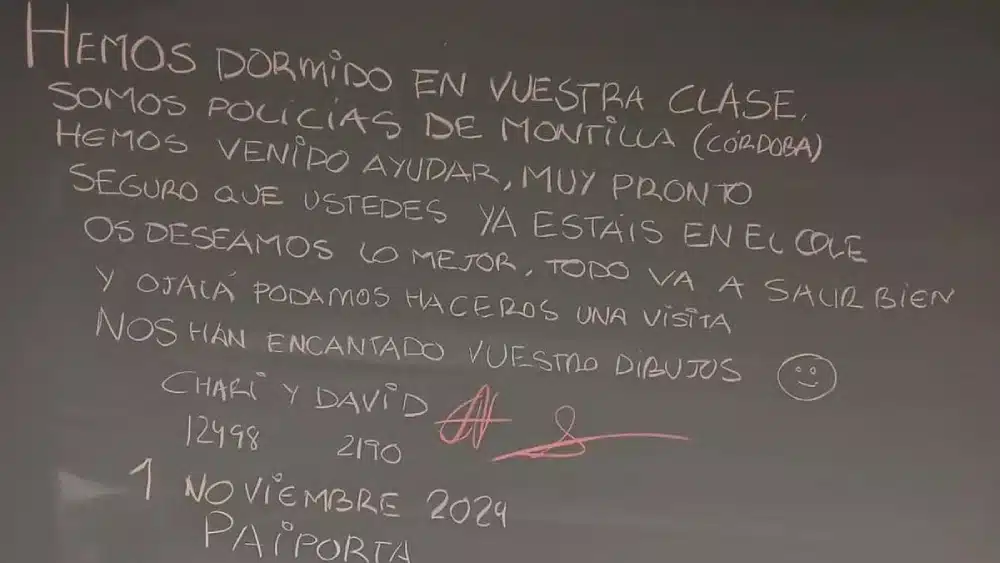 HEMOS DORMIDO EN VUESTRA CLASE,
SOMOS POLICÍAS DE MONTILLA (CÓRDOBA)
HEMOS VENIDO AYUDAR, MUY PRONTO
SEGURO QUE USTEDES YA ESTÁIS EN EL COLE
OS DESEAMOS LO MEJOR, TODO VA A SALIR BIEN
Y OJALÁ PODAMOS HACEROS UNA VISITA
NOS HAN ENCANTADO VUESTRO DIBUJOS
CHARI Y DAVID
12498 2190
1 NOVIEMBRE 2024
PAIPORTA